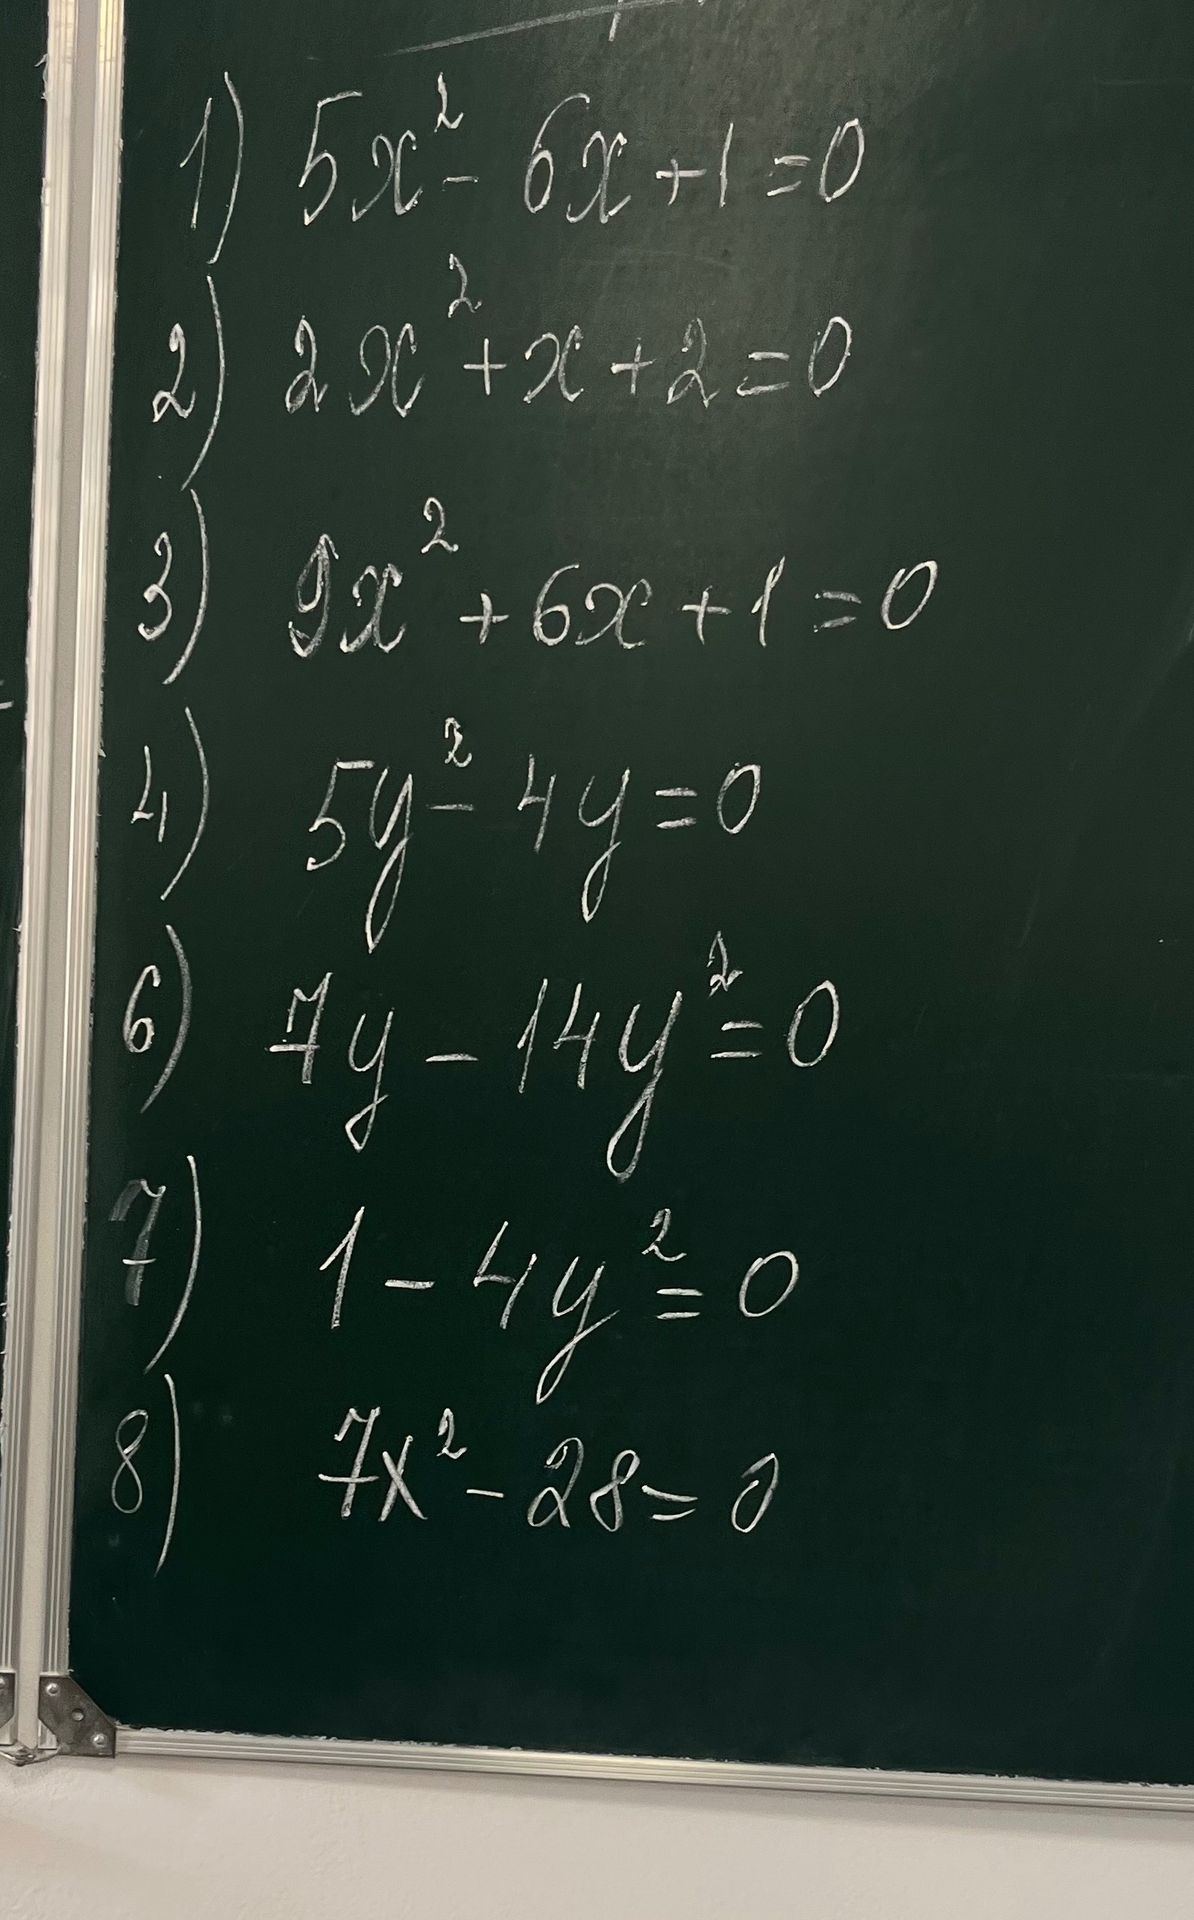 1) 5x² - 6x + 1 = 0
2) 2x² + x + 2 = 0
3) 9x² + 6x + 1 = 0
4) 5y² - 4y = 0
6) 7y - 14y² = 0
7) 1 - 4y² = 0
8) 7x² - 28 = 0